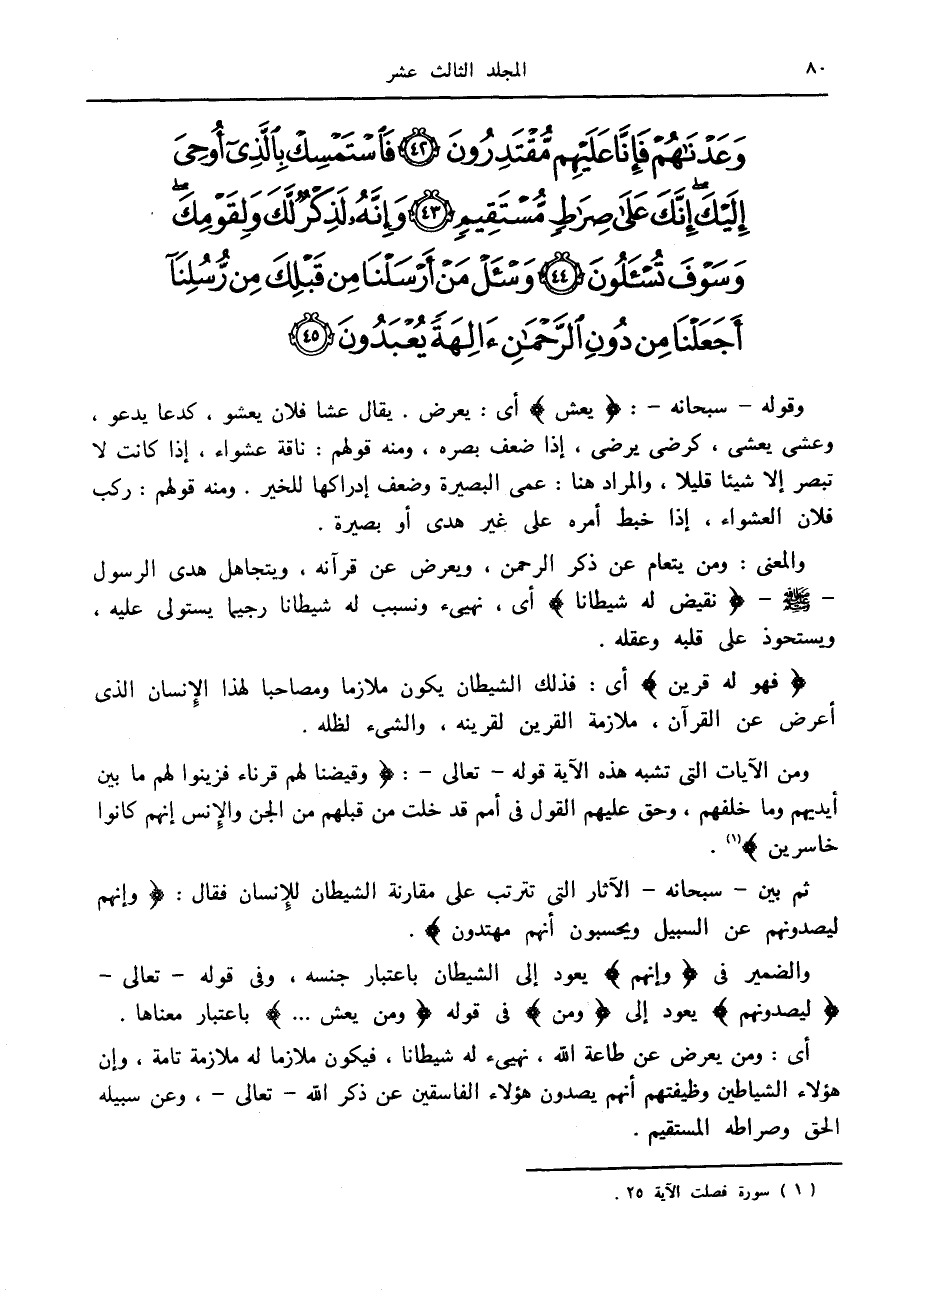 ٨٠ المجلد الثالث عشر
وَعَدْنَٰهُمْ فَإِنَّا عَلَيْهِم مُّقْتَدِرُونَ ﴿٤٢﴾ فَٱسْتَمْسِكْ بِٱلَّذِىٓ أُوحِىَ
إِلَيْكَ ۖ إِنَّكَ عَلَىٰ صِرَٰطٍ مُّسْتَقِيمٍ ﴿٤٣﴾ وَإِنَّهُۥ لَذِكْرٌ لَّكَ وَلِقَوْمِكَ ۖ
وَسَوْفَ تُسْـَٔلُونَ ﴿٤٤﴾ وَسْـَٔلْ مَنْ أَرْسَلْنَا مِن قَبْلِكَ مِن رُّسُلِنَآ
أَجَعَلْنَا مِن دُونِ ٱلرَّحْمَٰنِ ءَالِهَةً يُعْبَدُونَ ﴿٤٥﴾
وقوله – سبحانه – : ﴿ يعش ﴾ أى : يعرض . يقال عشا فلان يعشو ، كدعا يدعو ،
وعشى يعشى ، كرضى يرضى ، إذا ضعف بصره ، ومنه قولهم : ناقة عشواء ، إذا كانت لا
تبصر إلا شيئا قليلا ، والمراد هنا : عمى البصيرة وضعف إدراكها للخير . ومنه قولهم : ركب
فلان العشواء ، إذا خبط أمره على غير هدى أو بصيرة .
والمعنى : ومن يتعام عن ذكر الرحمن ، ويعرض عن قرآنه ، ويتجاهل هدى الرسول
– ﷺ – ﴿ نقيض له شيطانا ﴾ أى ، نهيىء ونسبب له شيطانا رجيما يستولى عليه ،
ويستحوذ على قلبه وعقله .
﴿ فهو له قرين ﴾ أى : فذلك الشيطان يكون ملازما ومصاحبا لهذا الإنسان الذى
أعرض عن القرآن ، ملازمة القرين لقرينه ، والشىء لظله .
ومن الآيات التى تشبه هذه الآية قوله – تعالى – : ﴿ وقيضنا لهم قرناء فزينوا لهم ما بين
أيديهم وما خلفهم ، وحق عليهم القول فى أمم قد خلت من قبلهم من الجن والإنس إنهم كانوا
خاسرين ﴾(١) .
ثم بين – سبحانه – الآثار التى تترتب على مقارنة الشيطان للإنسان فقال : ﴿ وإنهم
ليصدونهم عن السبيل ويحسبون أنهم مهتدون ﴾ .
والضمير فى ﴿ وإنهم ﴾ يعود إلى الشيطان باعتبار جنسه ، وفى قوله – تعالى –
﴿ ليصدونهم ﴾ يعود إلى ﴿ ومن ﴾ فى قوله ﴿ ومن يعش ... ﴾ باعتبار معناها .
أى : ومن يعرض عن طاعة الله ، نهيىء له شيطانا ، فيكون ملازما له ملازمة تامة ، وإن
هؤلاء الشياطين وظيفتهم أنهم يصدون هؤلاء الفاسقين عن ذكر الله – تعالى – ، وعن سبيله
الحق وصراطه المستقيم .
( ١ ) سورة فصلت الآية ٢٥ .